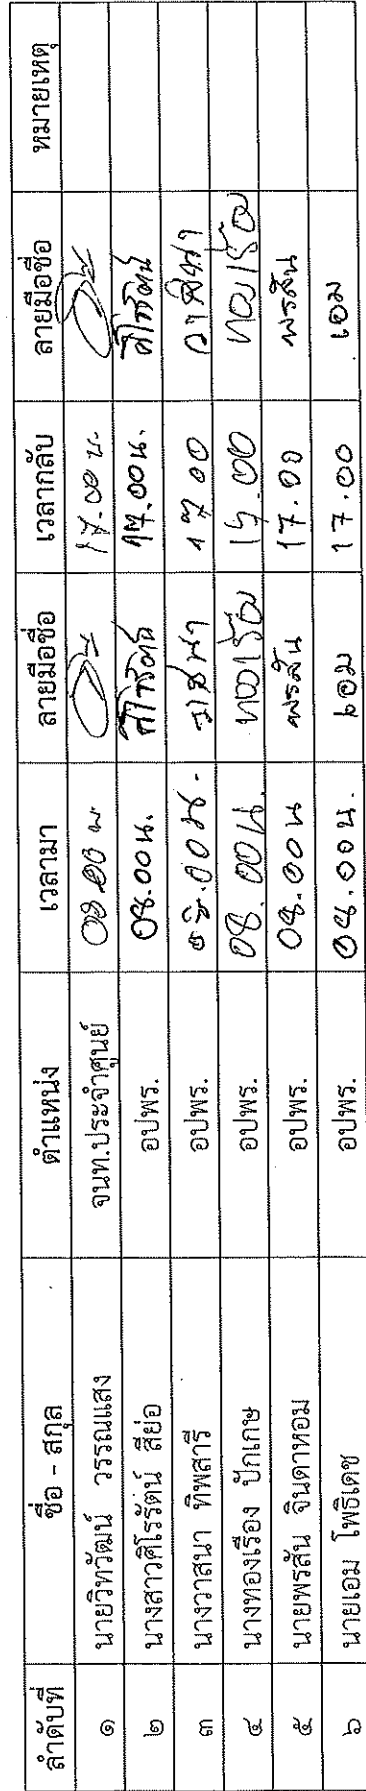 ลำดับที่ ชื่อ - สกุล ตำแหน่ง เวลามา ลายมือชื่อ เวลากลับ ลายมือชื่อ หมายเหตุ
๑ นายวิทวัฒน์ วรรณแสง จนท.ประจำศูนย์ 08.00 น. 17.00 น.
๒ นางสาวศิโรรัตน์ สีย่อ อปพร. 08.00 น. ศิโรรัตน์ 17.00 น. ศิโรรัตน์
๓ นางวาสนา ทิพสารี อปพร. ๐๘.๐๐ น. วาสนา ๑๗.๐๐ วาสนา
๔ นางทองเรือง ปักเกษ อปพร. 08.00 น. ทองเรือง 17.00 ทองเรือง
๕ นายพรสัน จินดาหอม อปพร. 08.00 น พรสัน 17.00 พรสัน
๖ นายเอม โพธิเดช อปพร. 08.00 น. เอม 17.00 เอม